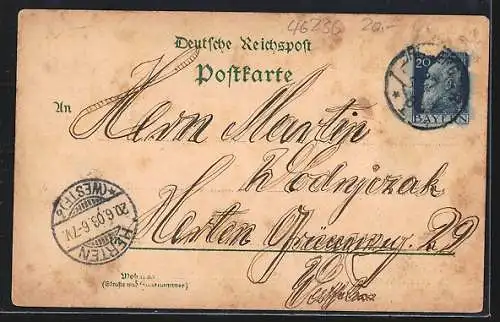 46236 20.-
Deutsche Reichspost
Postkarte
20
BAYERN
An
Herrn Martin
Herten 29
HERTEN
20.6.03.6-7N.
*(WESTF.)*
Wohnung
(Straße und Hausnummer)